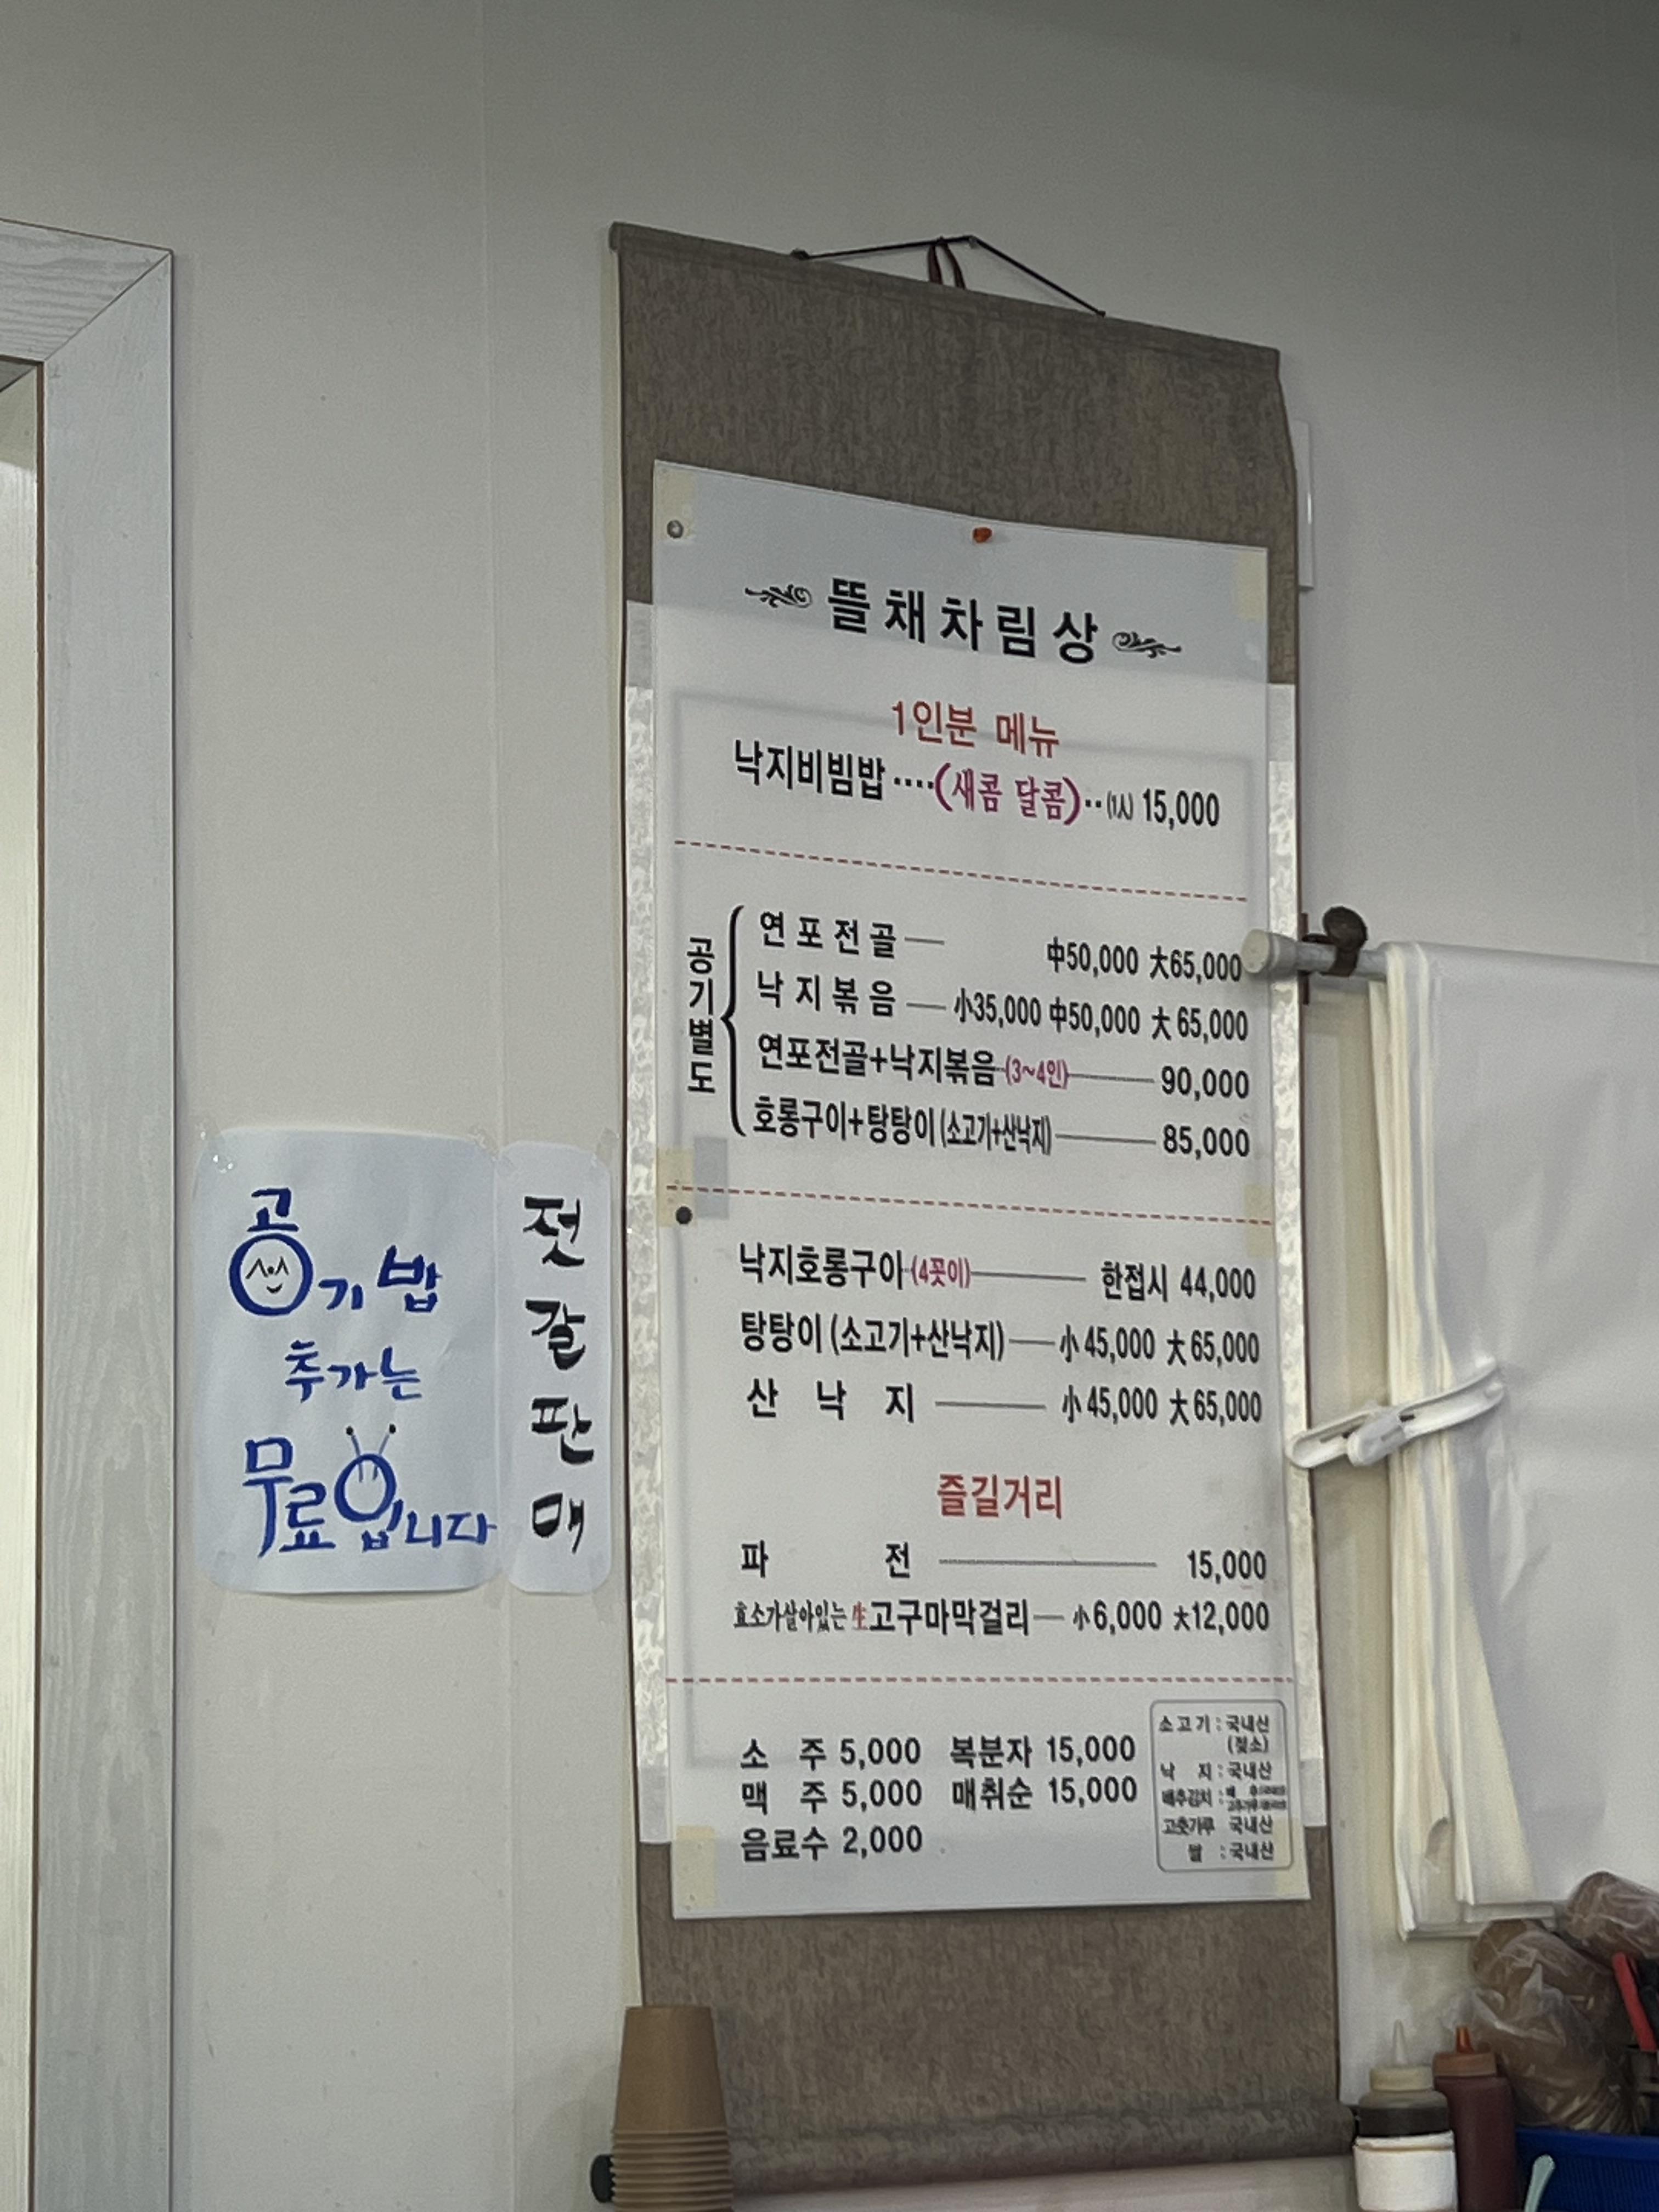 뜰채차림상
1인분 메뉴
낙지비빔밥····(새콤 달콤)··(1人) 15,000
공기별도
연포전골 中50,000 大65,000
낙지볶음 小35,000 中50,000 大65,000
연포전골+낙지볶음(3~4인) 90,000
호롱구이+탕탕이(소고기+산낙지) 85,000
낙지호롱구이(4꼿이) 한접시 44,000
탕탕이(소고기+산낙지) 小45,000 大65,000
산낙지 小45,000 大65,000
즐길거리
파전 15,000
효소가살아있는 生고구마막걸리 小6,000 大12,000
소주 5,000 복분자 15,000
맥주 5,000 매취순 15,000
음료수 2,000
소고기 : 국내산
(젖소)
낙지 : 국내산
배추김치 :
고춧가루 국내산
쌀 : 국내산
공기밥
추가는
무료입니다
젓갈판매